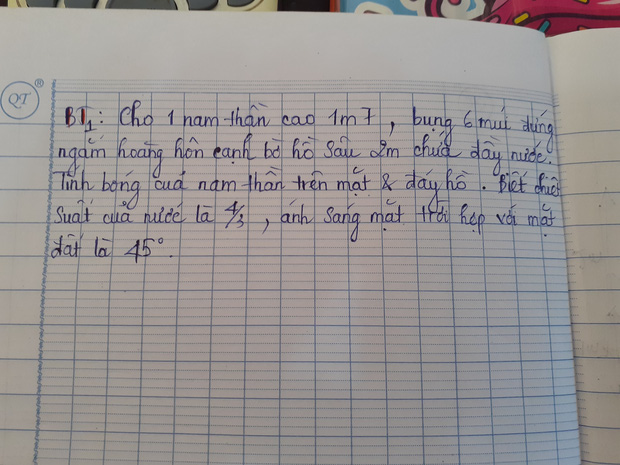 QT ®
BT1: Cho 1 nam thần cao 1m7, bụng 6 múi đứng
ngắm hoàng hôn cạnh bờ hồ sâu 2m chứa đầy nước.
Tính bóng của nam thần trên mặt & đáy hồ. Biết chiết
suất của nước là 4/3, ánh sáng mặt trời hợp với mặt
đất là 45°.